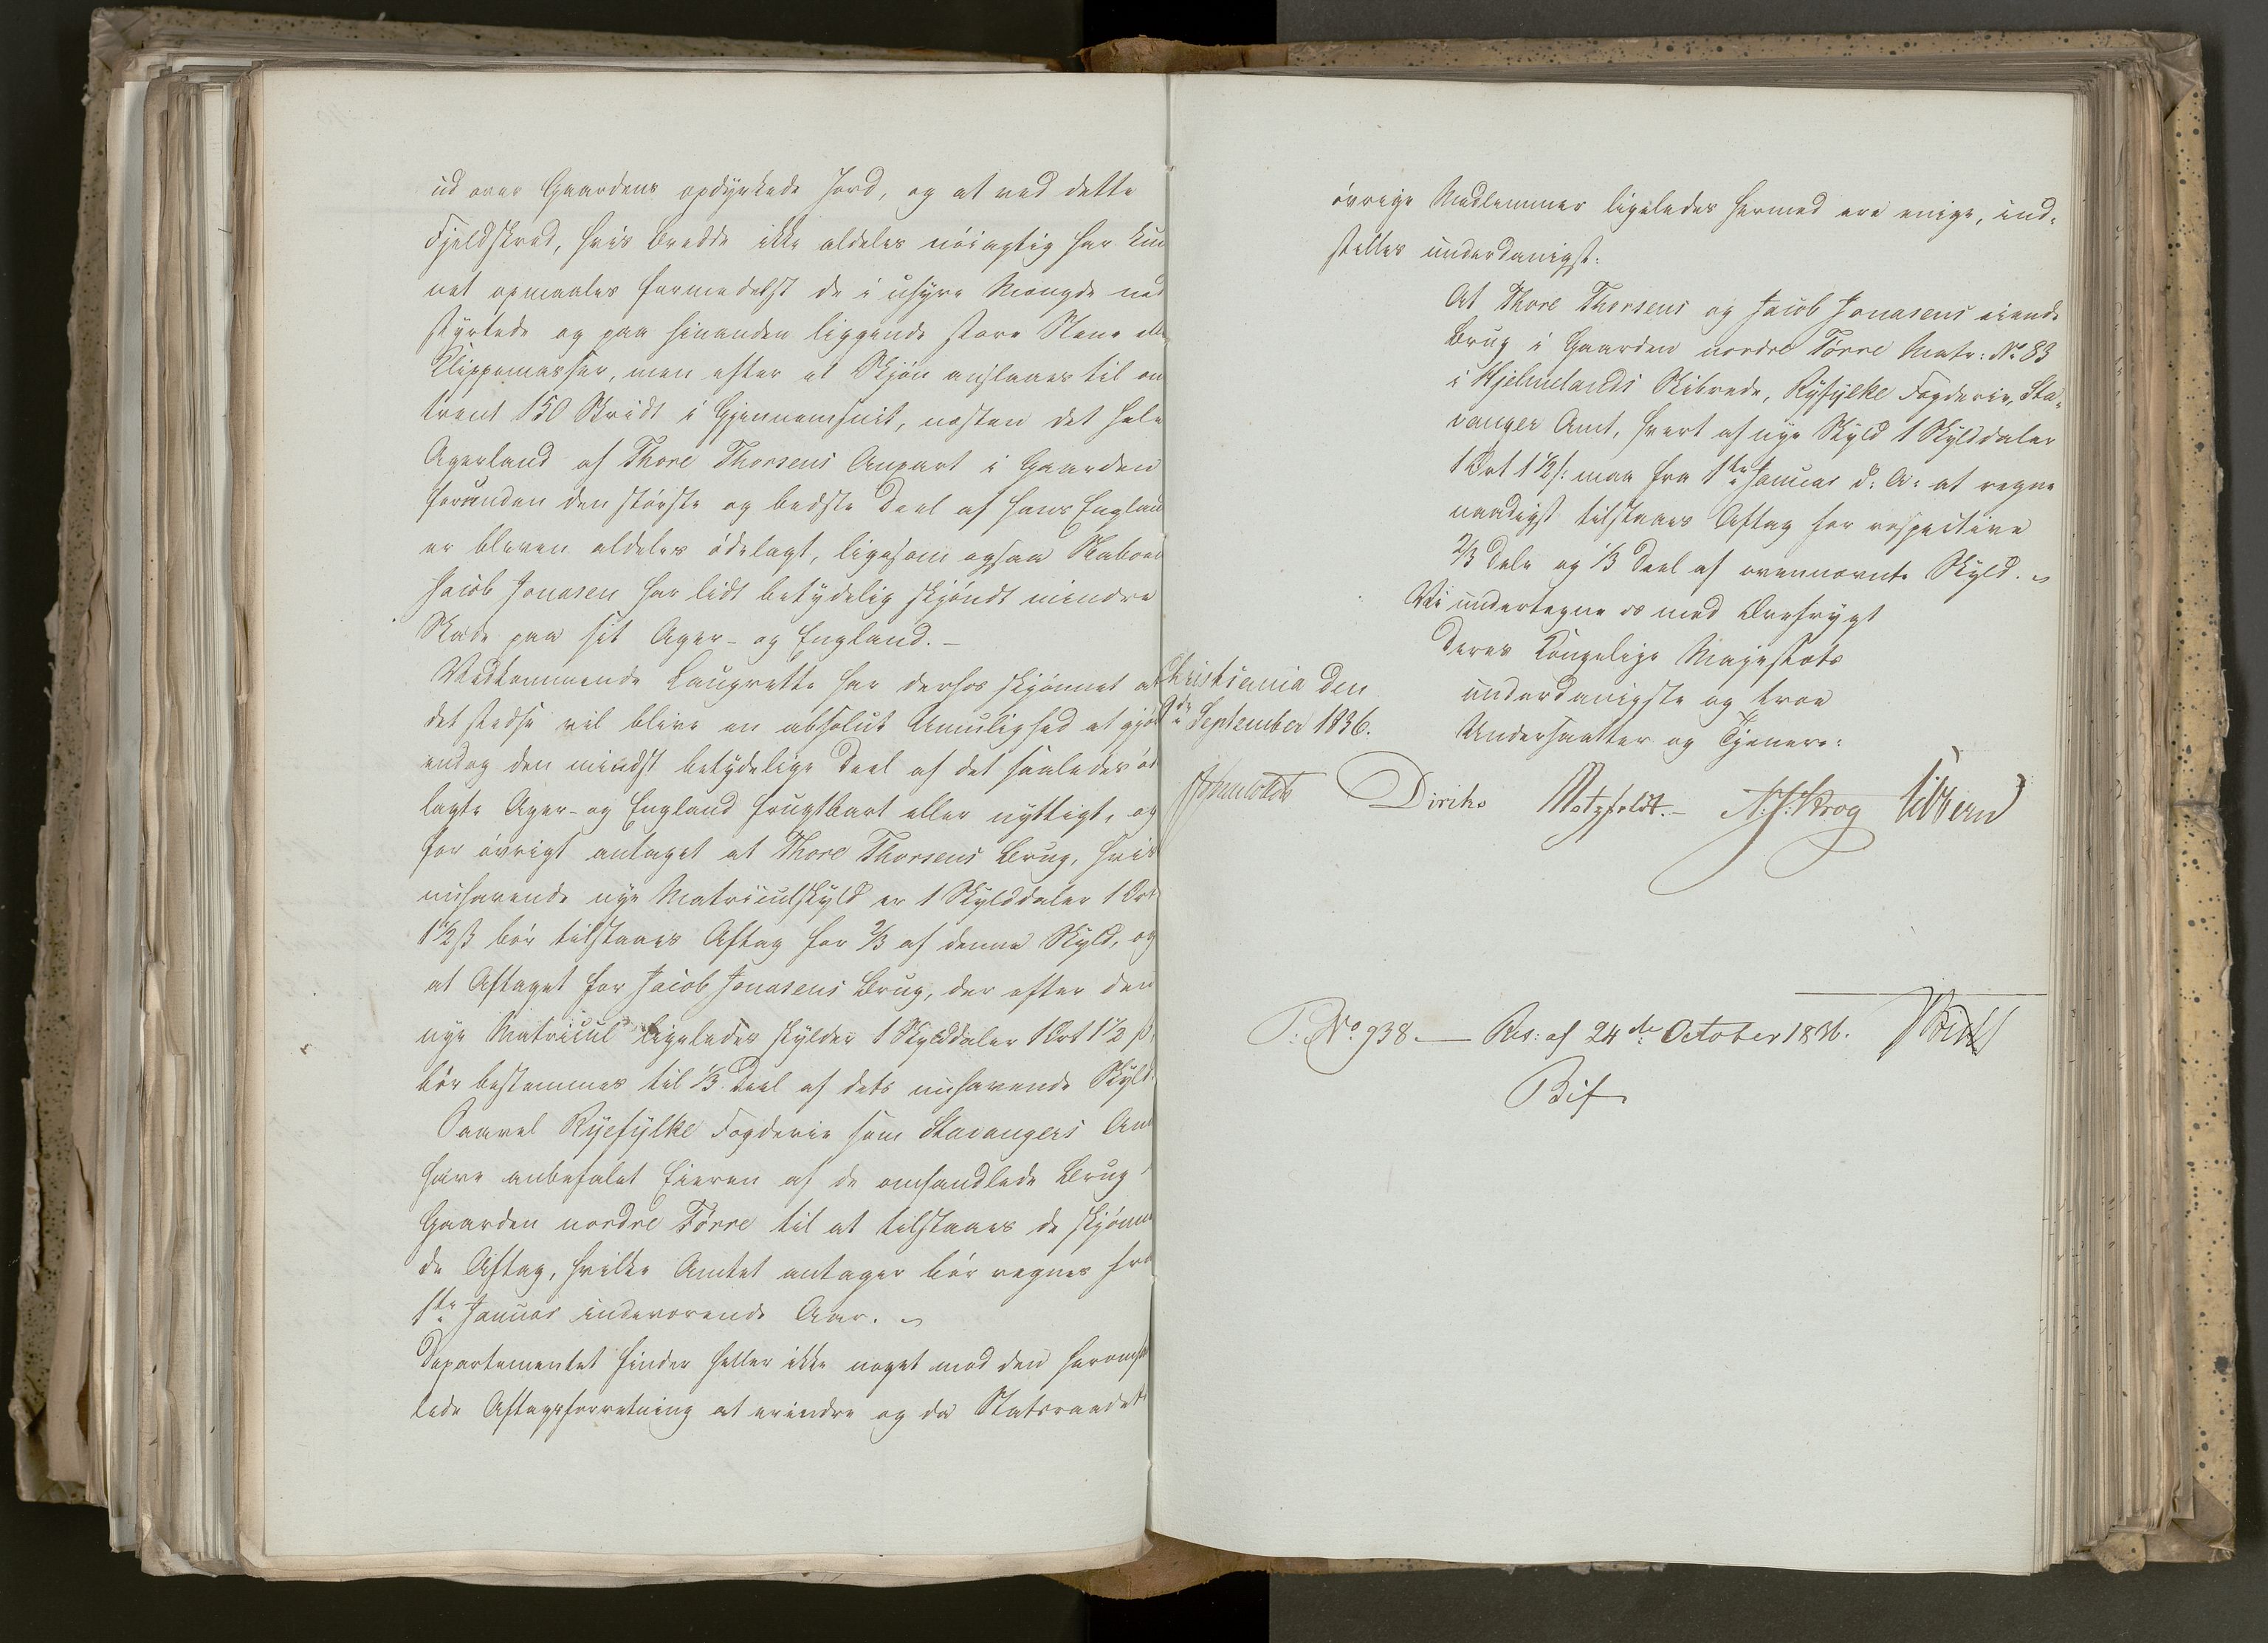 ud over Gaardens opdyrkede Jord, og at ved dette
Fjeldskred, hvis Bredde ikke aldeles nöiagtig har kun
net opmaales formedelst de i uhyre Mængde ned
styrtede og paa hinanden liggende store Stene eller
Klippemasser, men efter et Skjön anslaaes til om
trent 150 Skridt i Gjennemsnit, næsten det hele
Agerland af Thore Thorsens Anpart i Gaarden
foruden den störste og bedste Deel af hans England
er bleven aldeles ödelagt, ligesom ogsaa Naboen
Jacob Jonasen har lidt betydelig skjöndt mindre
Skade paa sit Ager- og England.-
Vedkommende Laugrette har derhos skjönnet at
det stedse vil blive en absolut Umulighed at gjöre
endog den mindst betydelige Deel af det saaledes öde
lagte Ager- og England frugtbart eller nyttigt, og
for övrigt antaget at Thore Thorsens Brug, hvis
nuhavende nye Matriculskyld er 1 Skylddaler 1 Ort
1½ ß bör tilstaaes Aftag for ⅔ af denne Skyld, og
at Aftaget for Jacob Jonasens Brug, der efter den
nye Matricul ligeledes skylder 1 Skylddaler 1 Ort 1½ ß,
bör bestemmes til ⅓ Deel af dets nuhavende Skyld.
Saavel Ryefylke Fogderie som Stavangers Amt
have anbefalet Eieren af de omhandlede Brug i
Gaarden nordre Törre til at tilstaaes de skjönne
de Aftag, hvilke Amtet antager bör regnes fra
1ste Januar indeværende Aar.
Departementet finder heller ikke noget mod den heromhand
lede Aftagsforretning at erindre og da Statsraadets
övrige Medlemmer ligeledes hermed ere enige, ind-
stilles underdanigst:
At Thore Thorsens og Jacob Jonasens eiende
Brug i Gaarden nordre Törre Matr: No 83
i Hjelmelands Skibrede, Ryfylke Fogderie, Sta-
vanger Amt, hvert af nye Skyld 1 Skylddaler
1 Ort 1½ ß: maa fra 1ste Januar d: A: at regne
naadigst tilstaaes Aftag for respective
⅔ Dele og ⅓ Deel af ovennævnte Skyld.
Vi undertegne os med Ærefrygt
Deres Kongelige Majestæts
underdanigste og troe
Undersaatter og Tjenere:
Christiania den
September 1836.
Diriks Motzfeldt.- Krog Sibbern
P: No 938.- Res: af 24de October 1836.
Bif